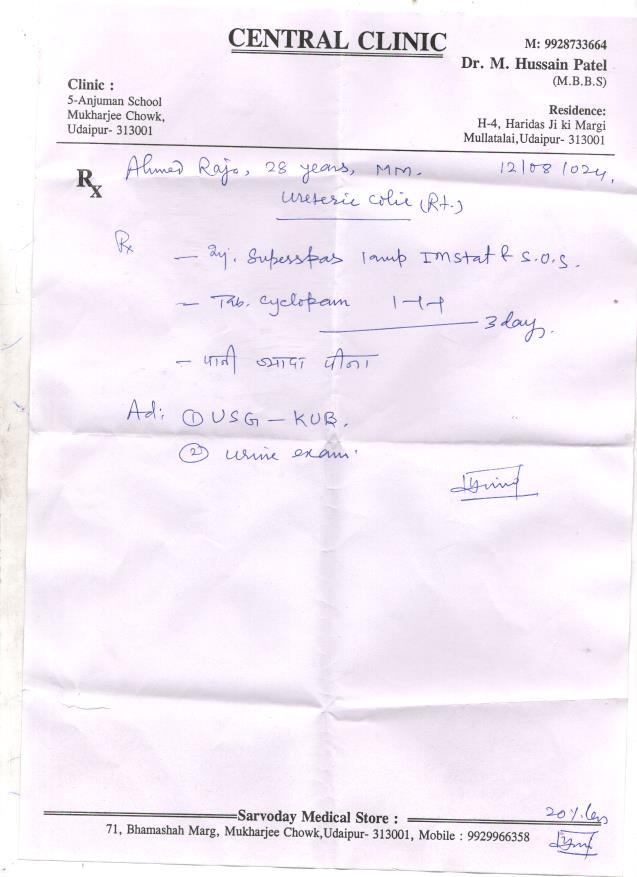 CENTRAL CLINIC
M: 9928733664
Dr. M. Hussain Patel
(M.B.B.S)
Clinic :
5-Anjuman School
Mukharjee Chowk,
Udaipur- 313001
Residence:
H-4, Haridas Ji ki Margi
Mullatalai,Udaipur- 313001
Rx Ahmed Raja, 28 years, MM. 12/08/024,
Ureteric Colic (Rt.)
Rx
— Inj. Supersspas 1amp IM stat & S.O.S.
— Tab. Cyclopam 1-1-1
3 day.
— पानी ज्यादा पीना
Ad: ① USG — KUB.
② Urine exam.
20%. Less
Sarvoday Medical Store :
71, Bhamashah Marg, Mukharjee Chowk,Udaipur- 313001, Mobile : 9929966358